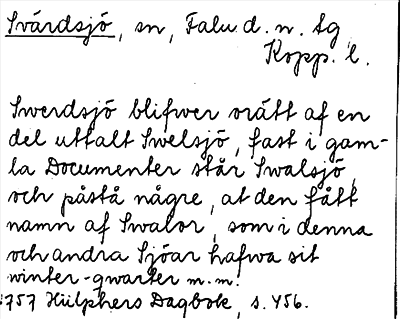 Svärdsjö, sn, Falu d. n. tg
Kopp. l.
Swerdsjö blifwer orätt af en
del uttalt Swelsjö, fast i gam-
la Documenter står Swalsjö,
och påstå någre, at den fått
namn af Swalor, som i denna
och andra Sjöar hafwa sit
winter-qwarter m.m.
1757 Hülphers Dagbok, s. 456.